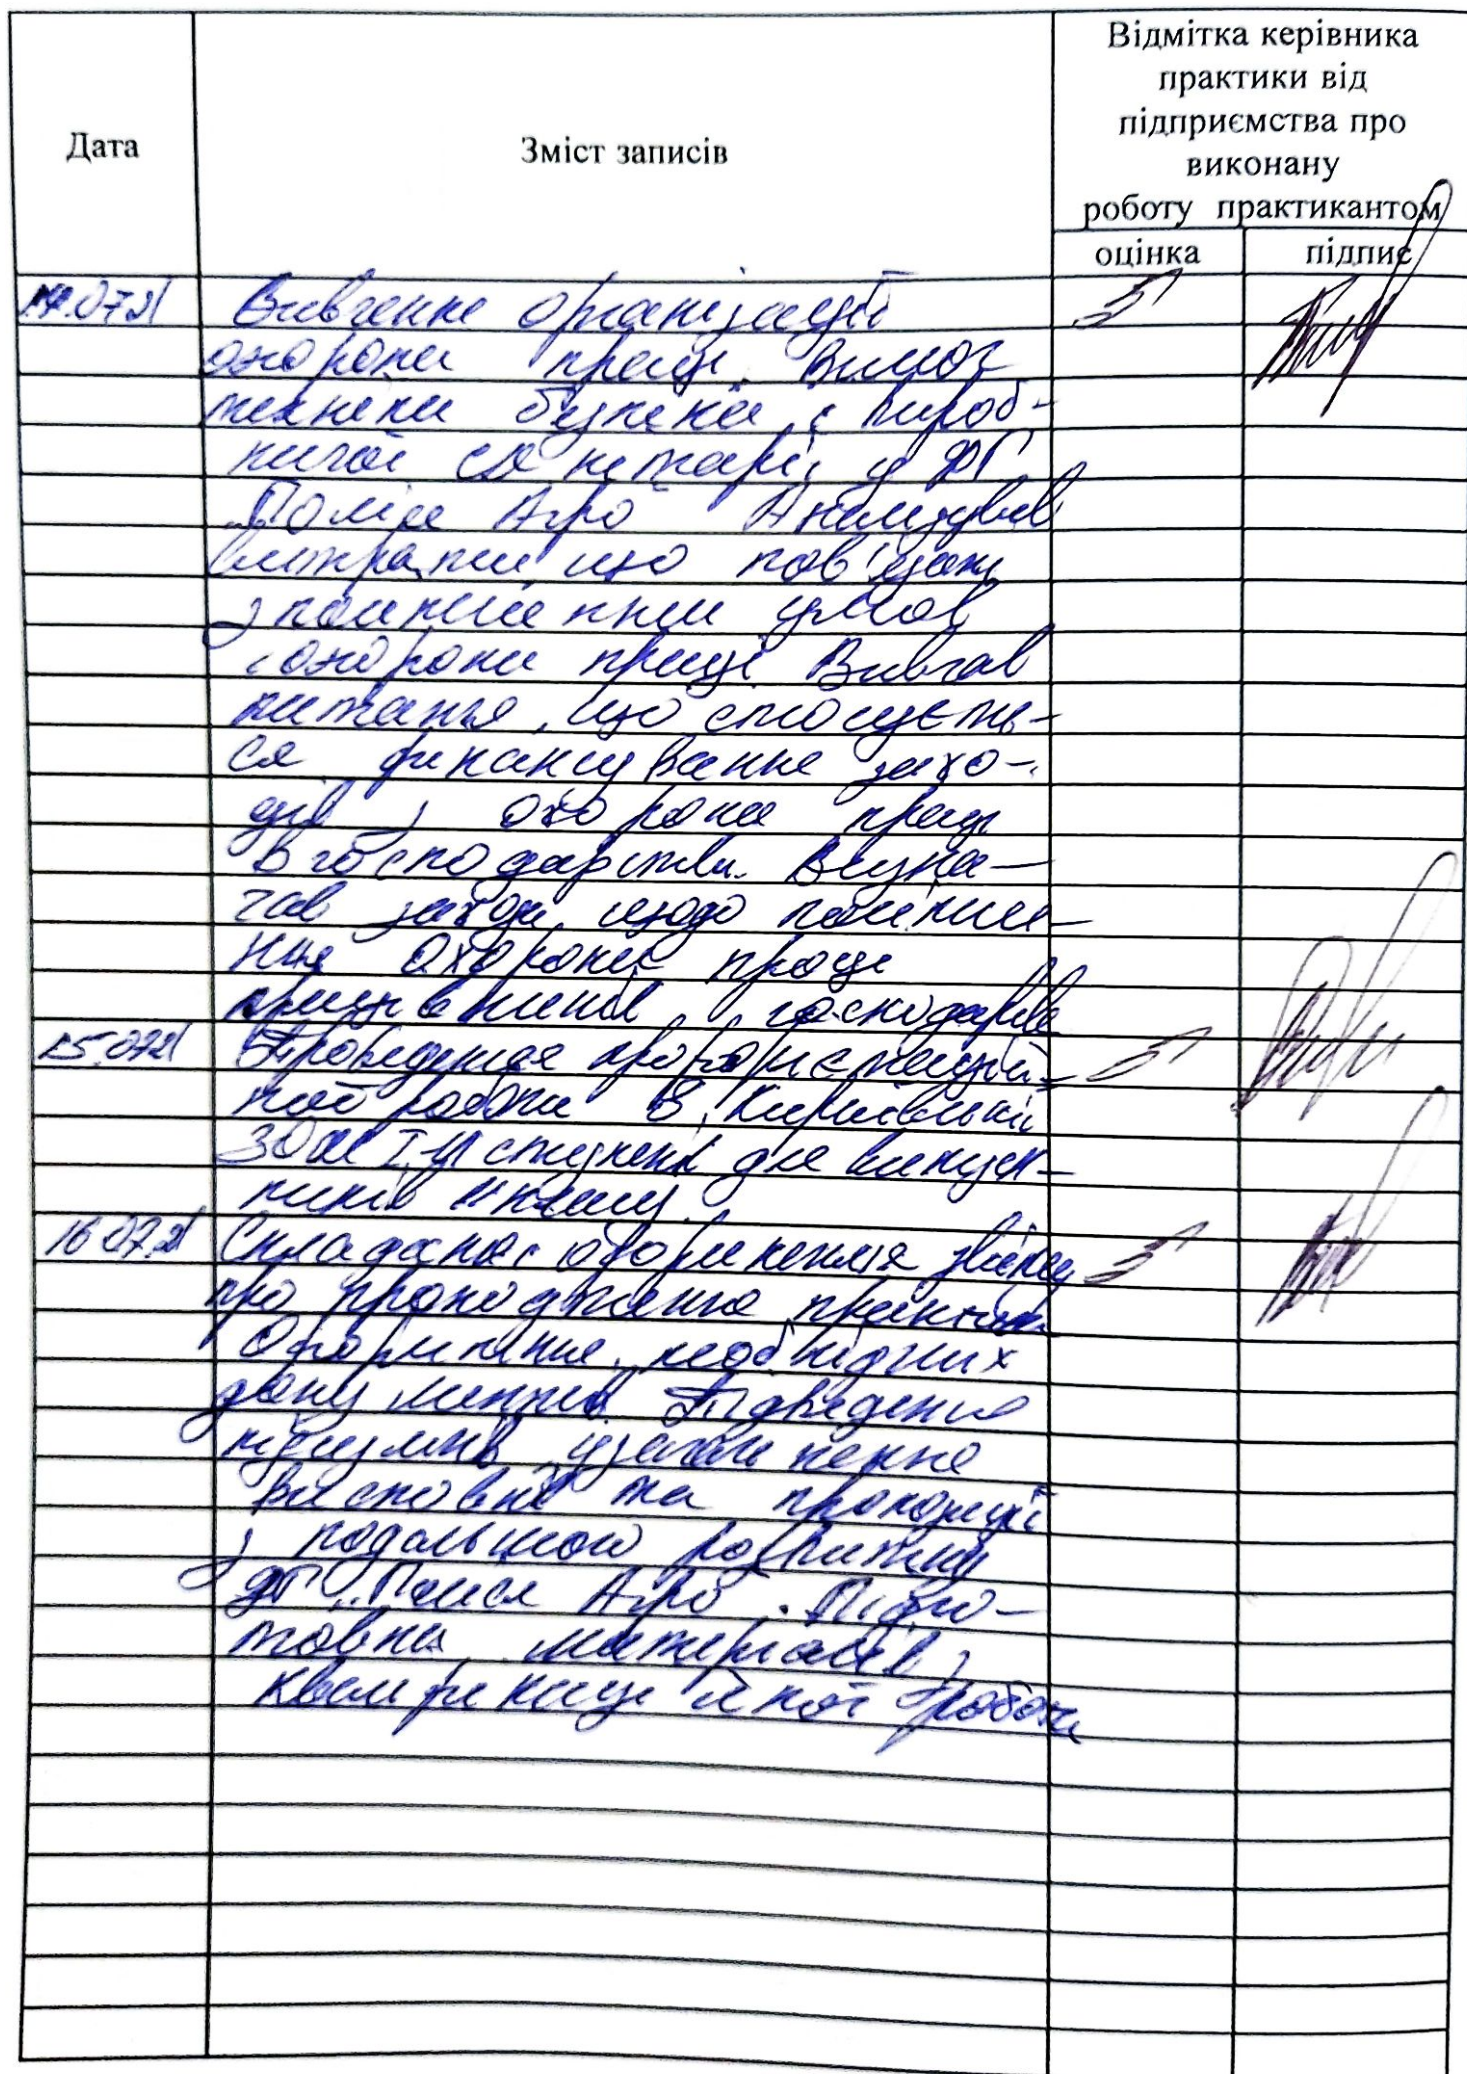 Дата
Зміст записів
Відмітка керівника
практики від
підприємства про
виконану
роботу практикантом
оцінка
підпис
14.07.21
Вивчення організації
5
охорони праці, вимог
техніки безпеки і вироб-
ничої санітарії у ФГ
"Поліся Агро" Аналізував
витрати що пов'язані
з поліпшенням умов
і охорони праці Вивчав
питання, що стосуєть-
ся фінансування захо-
дів з охорони праці
в господарстві. Визна-
чав заходи щодо поліпше-
ння охорони праці
працівників господарства
15.07.21
Проведення профорієнтацій-
5
ної роботи в
ЗОШ І-ІІІ ступенів для випуск-
ників школи.
16.07.21
Складання і оформлення звіту
5
про проходження практики
Оформлення необхідних
документів. Підведення
підсумків, узагальнення
висновків та пропозицій
з подальшого розвитку
ФГ "Поліся Агро". Підго-
товка матеріалів з
кваліфікаційної роботи